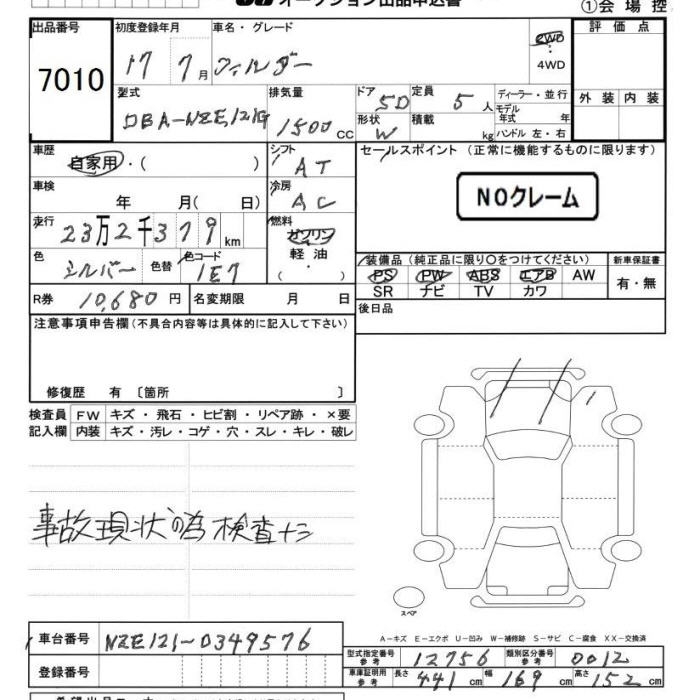 オークション出品申込書
①会場控
出品番号 初度登録年月 車名・グレード 評価点
7010 17 7月 フィルダー 2WD
4WD
型式 排気量 ドア 5D 定員 5人 ディーラー・並行 外装 内装
DBA-NZE121G 1500CC 形状 W 積載 kg モデル年式 年
ハンドル 左・右
車歴 シフト セールスポイント (正常に機能するものに限ります)
自家用・( ) AT
車検 冷房 NOクレーム
年 月( 日) AC
走行 燃料
23万2千379km ガソリン
色 シルバー 色替 色コード 1E7 軽油 装備品 (純正品に限り○をつけてください) 新車保証書
・( ) PS PW ABS エアB AW 有・無
SR ナビ TV カワ
R券 10,680円 名変期限 月 日 後日品
注意事項申告欄(不具合内容等は具体的に記入して下さい)
修復歴 有 〔箇所 〕
検査員 FW キズ・飛石・ヒビ割・リペア跡・×要
記入欄 内装 キズ・汚レ・コゲ・穴・スレ・キレ・破レ
事故現状の為検査ナシ
スペア
A-キズ E-エクボ U-凹み W-補修跡 S-サビ C-腐食 XX-交換済
車台番号 NZE121-0349576 型式指定番号 参考 12756 類別区分番号 参考 0012
登録番号 車庫証明用 参考 長さ 441cm 幅 169cm 高さ 152cm